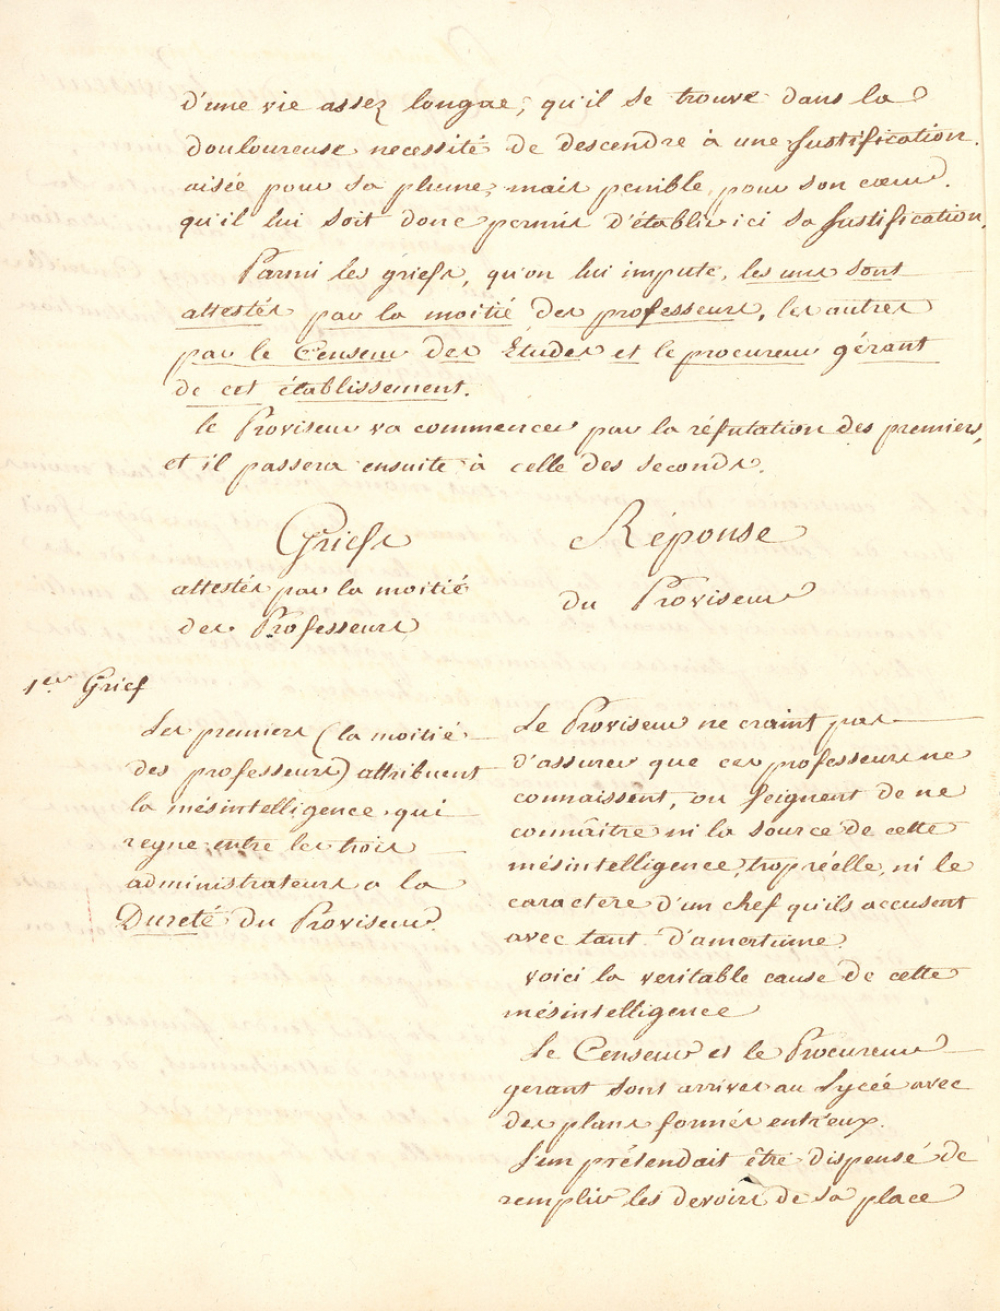 d'une vie assez longue, qu'il se trouve dans la
douloureuse necessité de descendre à une Justification.
aisée pour sa plume, mais penible pour son cœur.
qu'il lui soit donc permis d'établir ici sa Justification.
Parmi les griefs, qu'on lui impute, les uns sont
attestés par la moitié des professeurs, les autres
par le Censeur des Études et le procureur gérant
de cet établissement.
le Proviseur va commencer par la réfutation des premiers,
et il passera ensuite à celle des seconds.
Griefs
attestés par la moitié
des Professeurs
Réponse
du Proviseur
1er Grief
Les premiers (la moitié
des professeurs) attribuent
la mésintelligence qui
regne entre les trois
administrateurs a la
Dureté du Proviseur.
Le Proviseur ne craint pas
d'assurer que ces professeurs ne
connaissent, ou feignent de ne
connaître ni la source de cette
mésintelligence, trop réelle, ni le
caractere d'un chef qu'ils accusent
avec tant d'amertume.
voici la veritable cause de cette
mésintelligence
Le Censeur et le Procureur
gerant sont arrivés au Lycée avec
des plans formés entr'eux.
L'un prétendait être dispensé de
remplir les devoirs de sa place